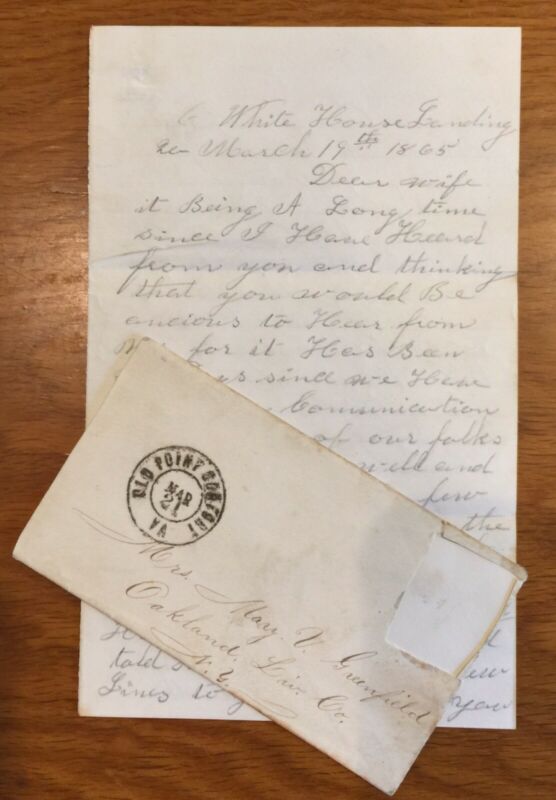 White House Landing
March 19th 1865
Dear wife
it Being A Long time
since I Have Heard
from you and thinking
that you would Be
ancious to Hear from
for it Has Been
since we Have
Comunication
of our folks
well and
few
the
told
Lines to you
OLD POINT COMFORT
MAR
21
VA
Mrs. Mary V. Greenfield
Oakland, Liv. Co.
N.Y.